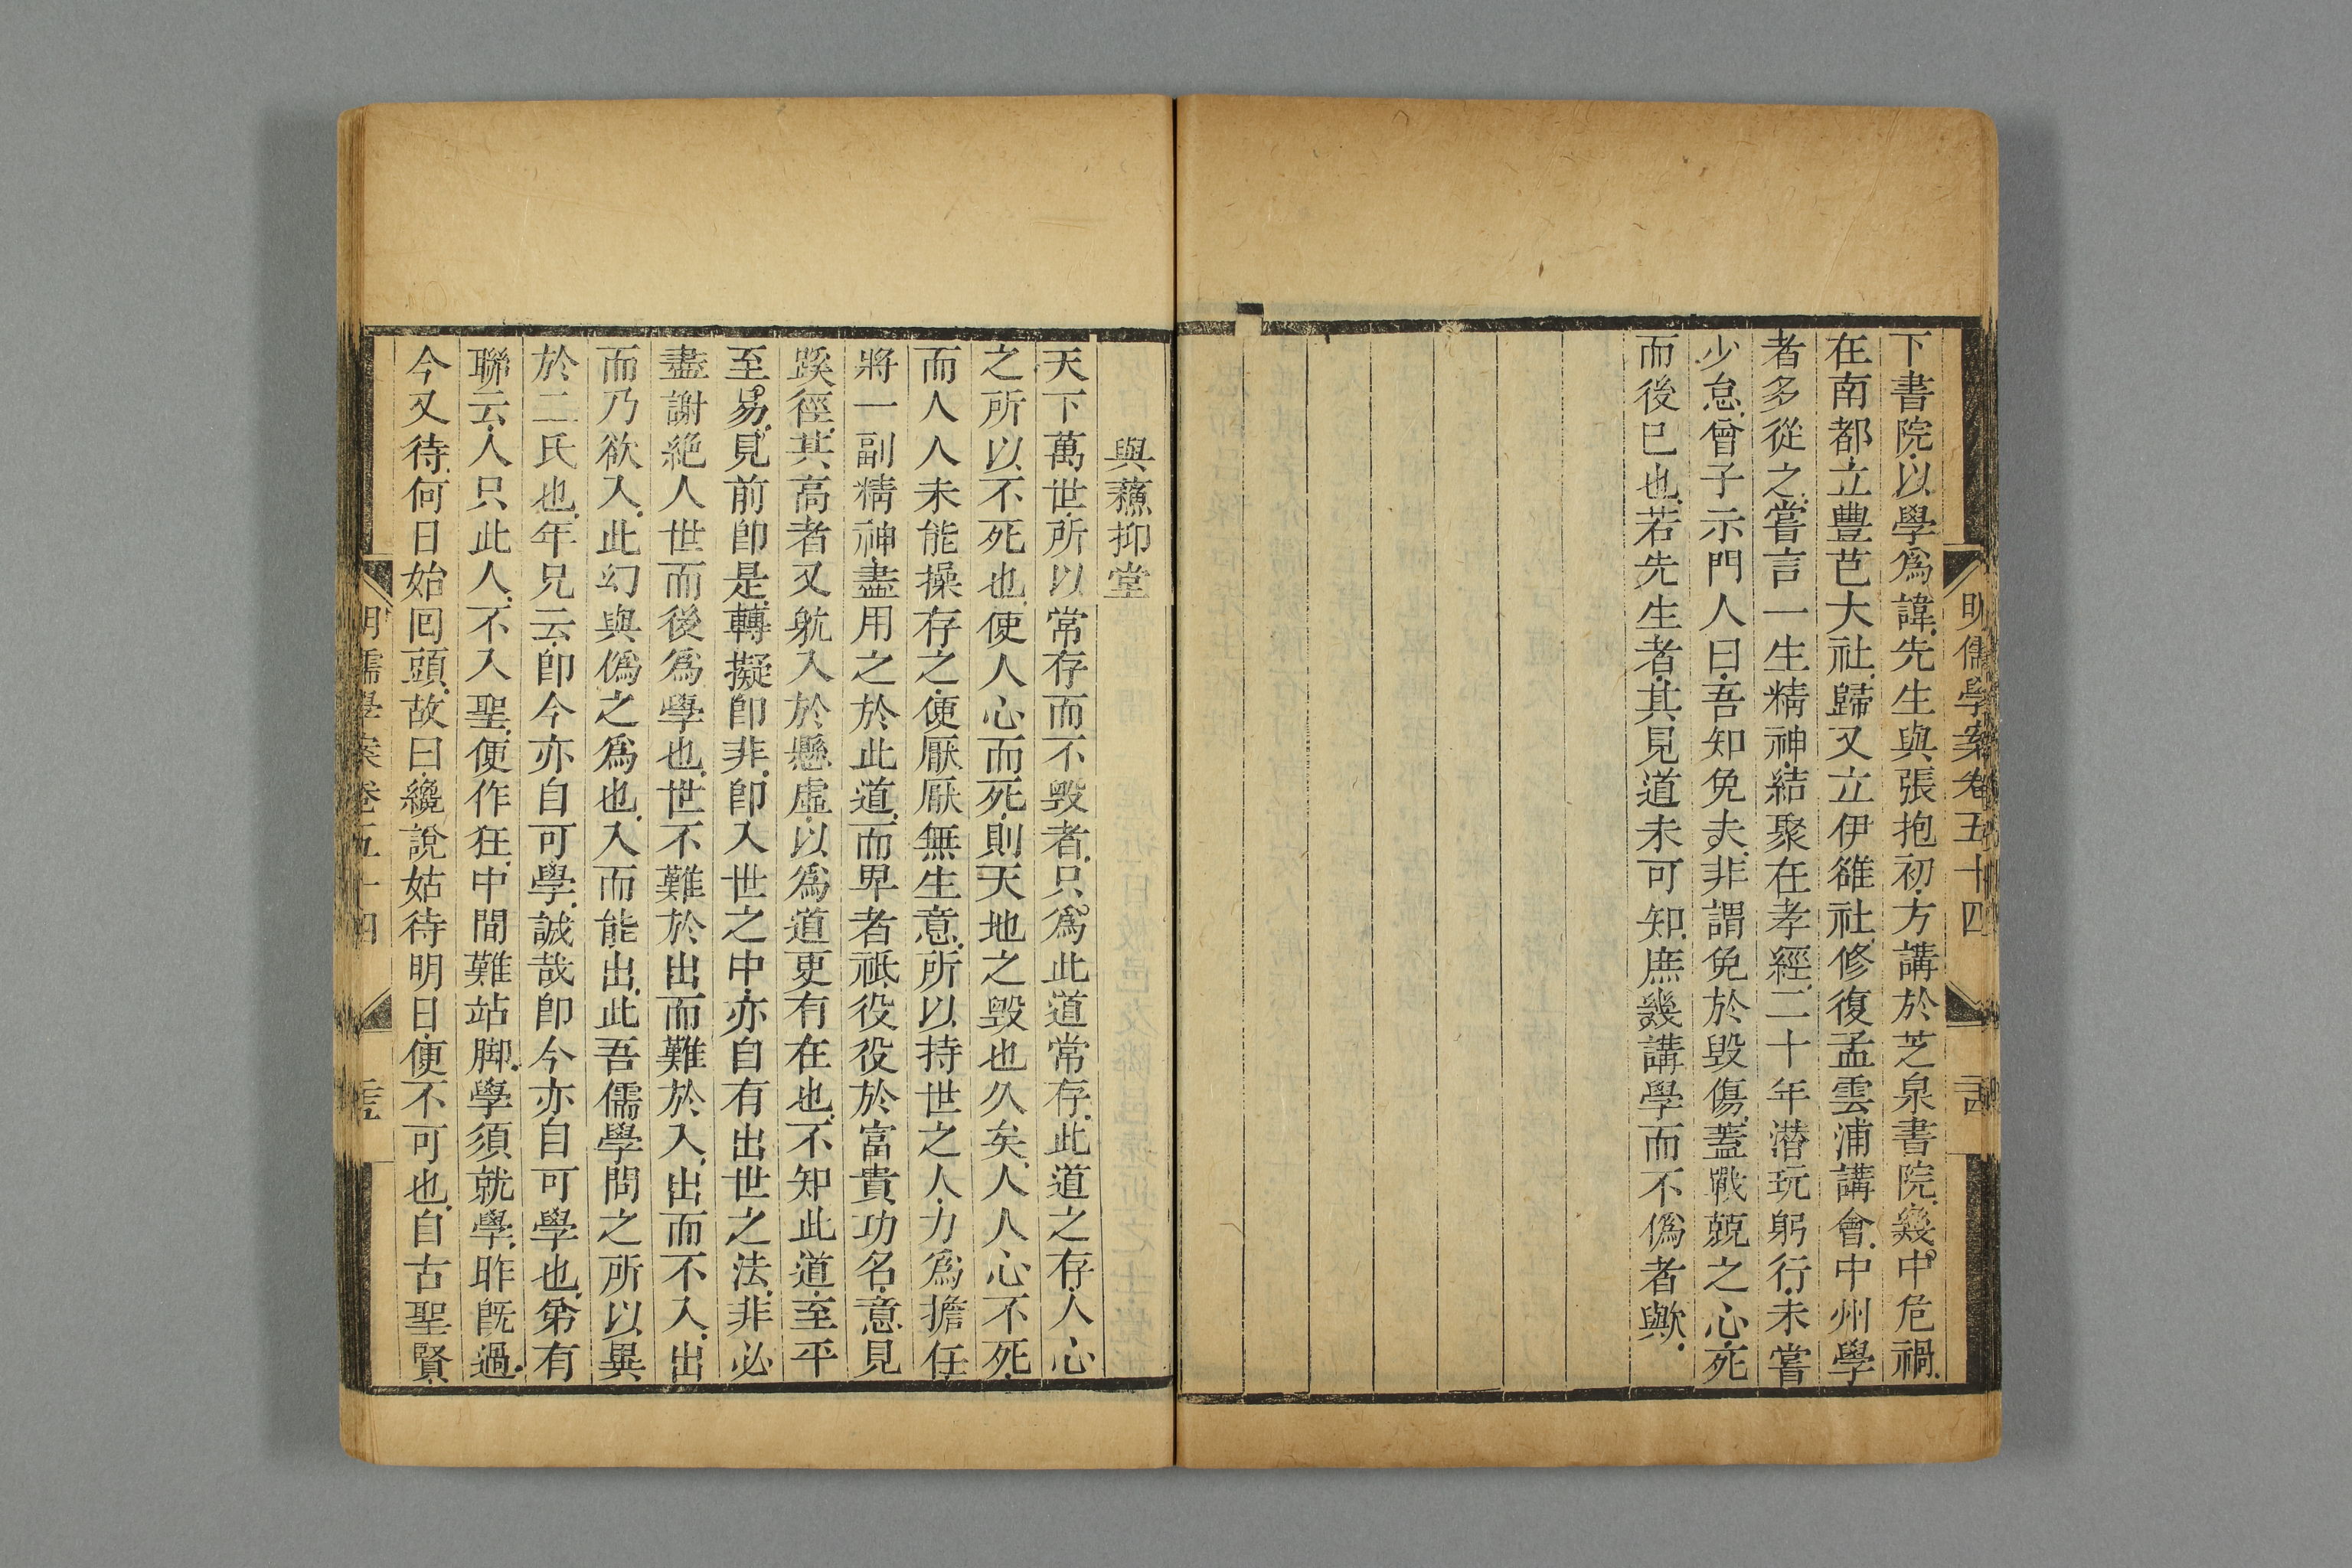 明儒學案卷五十四
下書院以學爲諱先生與張抱初方講於芝泉書院幾中危禍
在南都立豐芑大社歸又立伊雒社修復孟雲浦講會中州學
者多從之嘗言一生精神結聚在孝經二十年潛玩躬行未嘗
少怠曾子示門人曰吾知免夫非謂免於毀傷蓋戰兢之心死
而後已也若先生者其見道未可知庶幾講學而不僞者歟
與蘓抑堂
天下萬世所以常存而不毀者只爲此道常存此道之存人心
之所以不死也使人心而死則天地之毀也久矣人人心不死
而人人未能操存之便厭厭無生意所以持世之人力爲擔任
將一副精神盡用之於此道而畀者祗役役於富貴功名意見
蹊徑其高者又躭入於懸虛以爲道更有在也不知此道至平
至易見前卽是轉擬卽非卽入世之中亦自有出世之法非必
盡謝絕人世而後爲學也世不難於出而難於入出而不入出
而乃欲入此幻與僞之爲也入而能出此吾儒學問之所以異
於二氏也年兄云卽今亦自可學誠哉卽今亦自可學也第有
聯云人只此人不入聖便作狂中間難站脚學須就學昨旣過
今又待何日始回頭故曰纔說姑待明日便不可也自古聖賢
明儒學案卷五十四